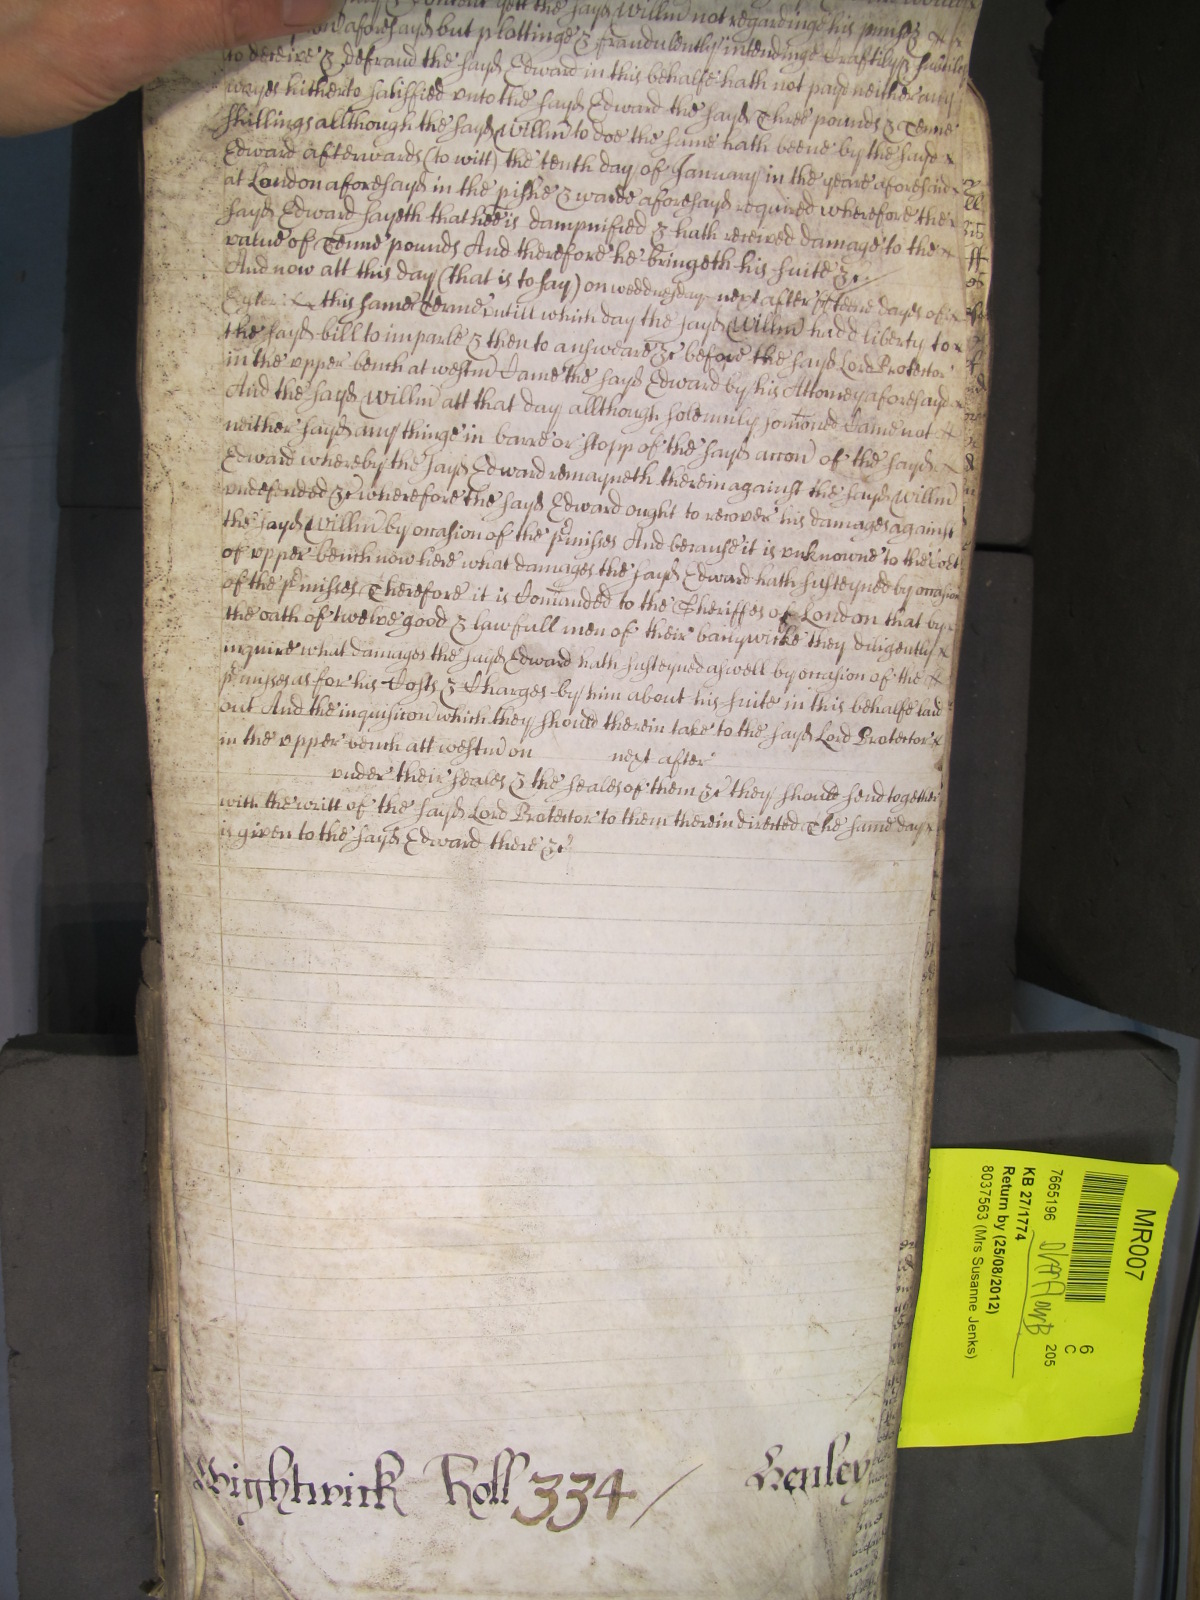 yett the sayd Willm not regardinge his pmiss &
aforesayd but plottinge & fraudulently intendinge Craftily & subtily
to deceive & defraud the sayd Edward in this behalfe hath not payd neither any
wayes hitherto satisfied unto the sayd Edward the sayd Three pounds & Tenne
shillings allthough the sayd Willm to doe the same hath beene by the sayd
Edward afterwards (to witt) the tenth day of January in the yeare aforesaid
at London aforesayd in the pishe & warde aforesayd required wherefore the
sayd Edward sayeth that hee is dampnified & hath received damage to the
value of Tenne pounds And therefore he bringeth his suite &c
And now att this day (that is to say) on wednesday next after fifteene dayes of
Easter this same Terme untill which day the sayd Willm hadd liberty to
the sayd bill to imparle & then to answeare &c before the sayd Lord Protector
in the upper bench at westm Came the sayd Edward by his Attorney aforesayd
And the sayd Willm att that day allthough solemnly somoned Came not
neither sayd any thinge in barre or stopp of the sayd accon of the sayd
Edward whereby the sayd Edward remayneth therein against the sayd Willm
undefended &c wherefore the sayd Edward ought to recover his damages against
the sayd Willm by occasion of the pmisses And because it is unknowne to the Cort
of upper bench now here what damages the sayd Edward hath susteyned by occasion
of the pmisses Therefore it is Comanded to the Sheriffes of London that by
the oath of twelve good & lawfull men of their baliywicke they diligently
inquire what damages the sayd Edward hath susteyned aswell by occasion of the
pmisses as for his Costs & Charges by him about his suite in this behalfe laid
out And the inquisicon which they should therein take to the sayd Lord Protector
in the upper bench att westm on next after
under their seales & the seales of them &c they should send together
with the writt of the sayd Lord Protector to them therein directed The same day
is given to the sayd Edward there &c
Wightwick Roll 334 Henley
MR007
6
C
205
7665196
KB 27/1774
Return by (25/08/2012)
8037563 (Mrs Susanne Jenks)